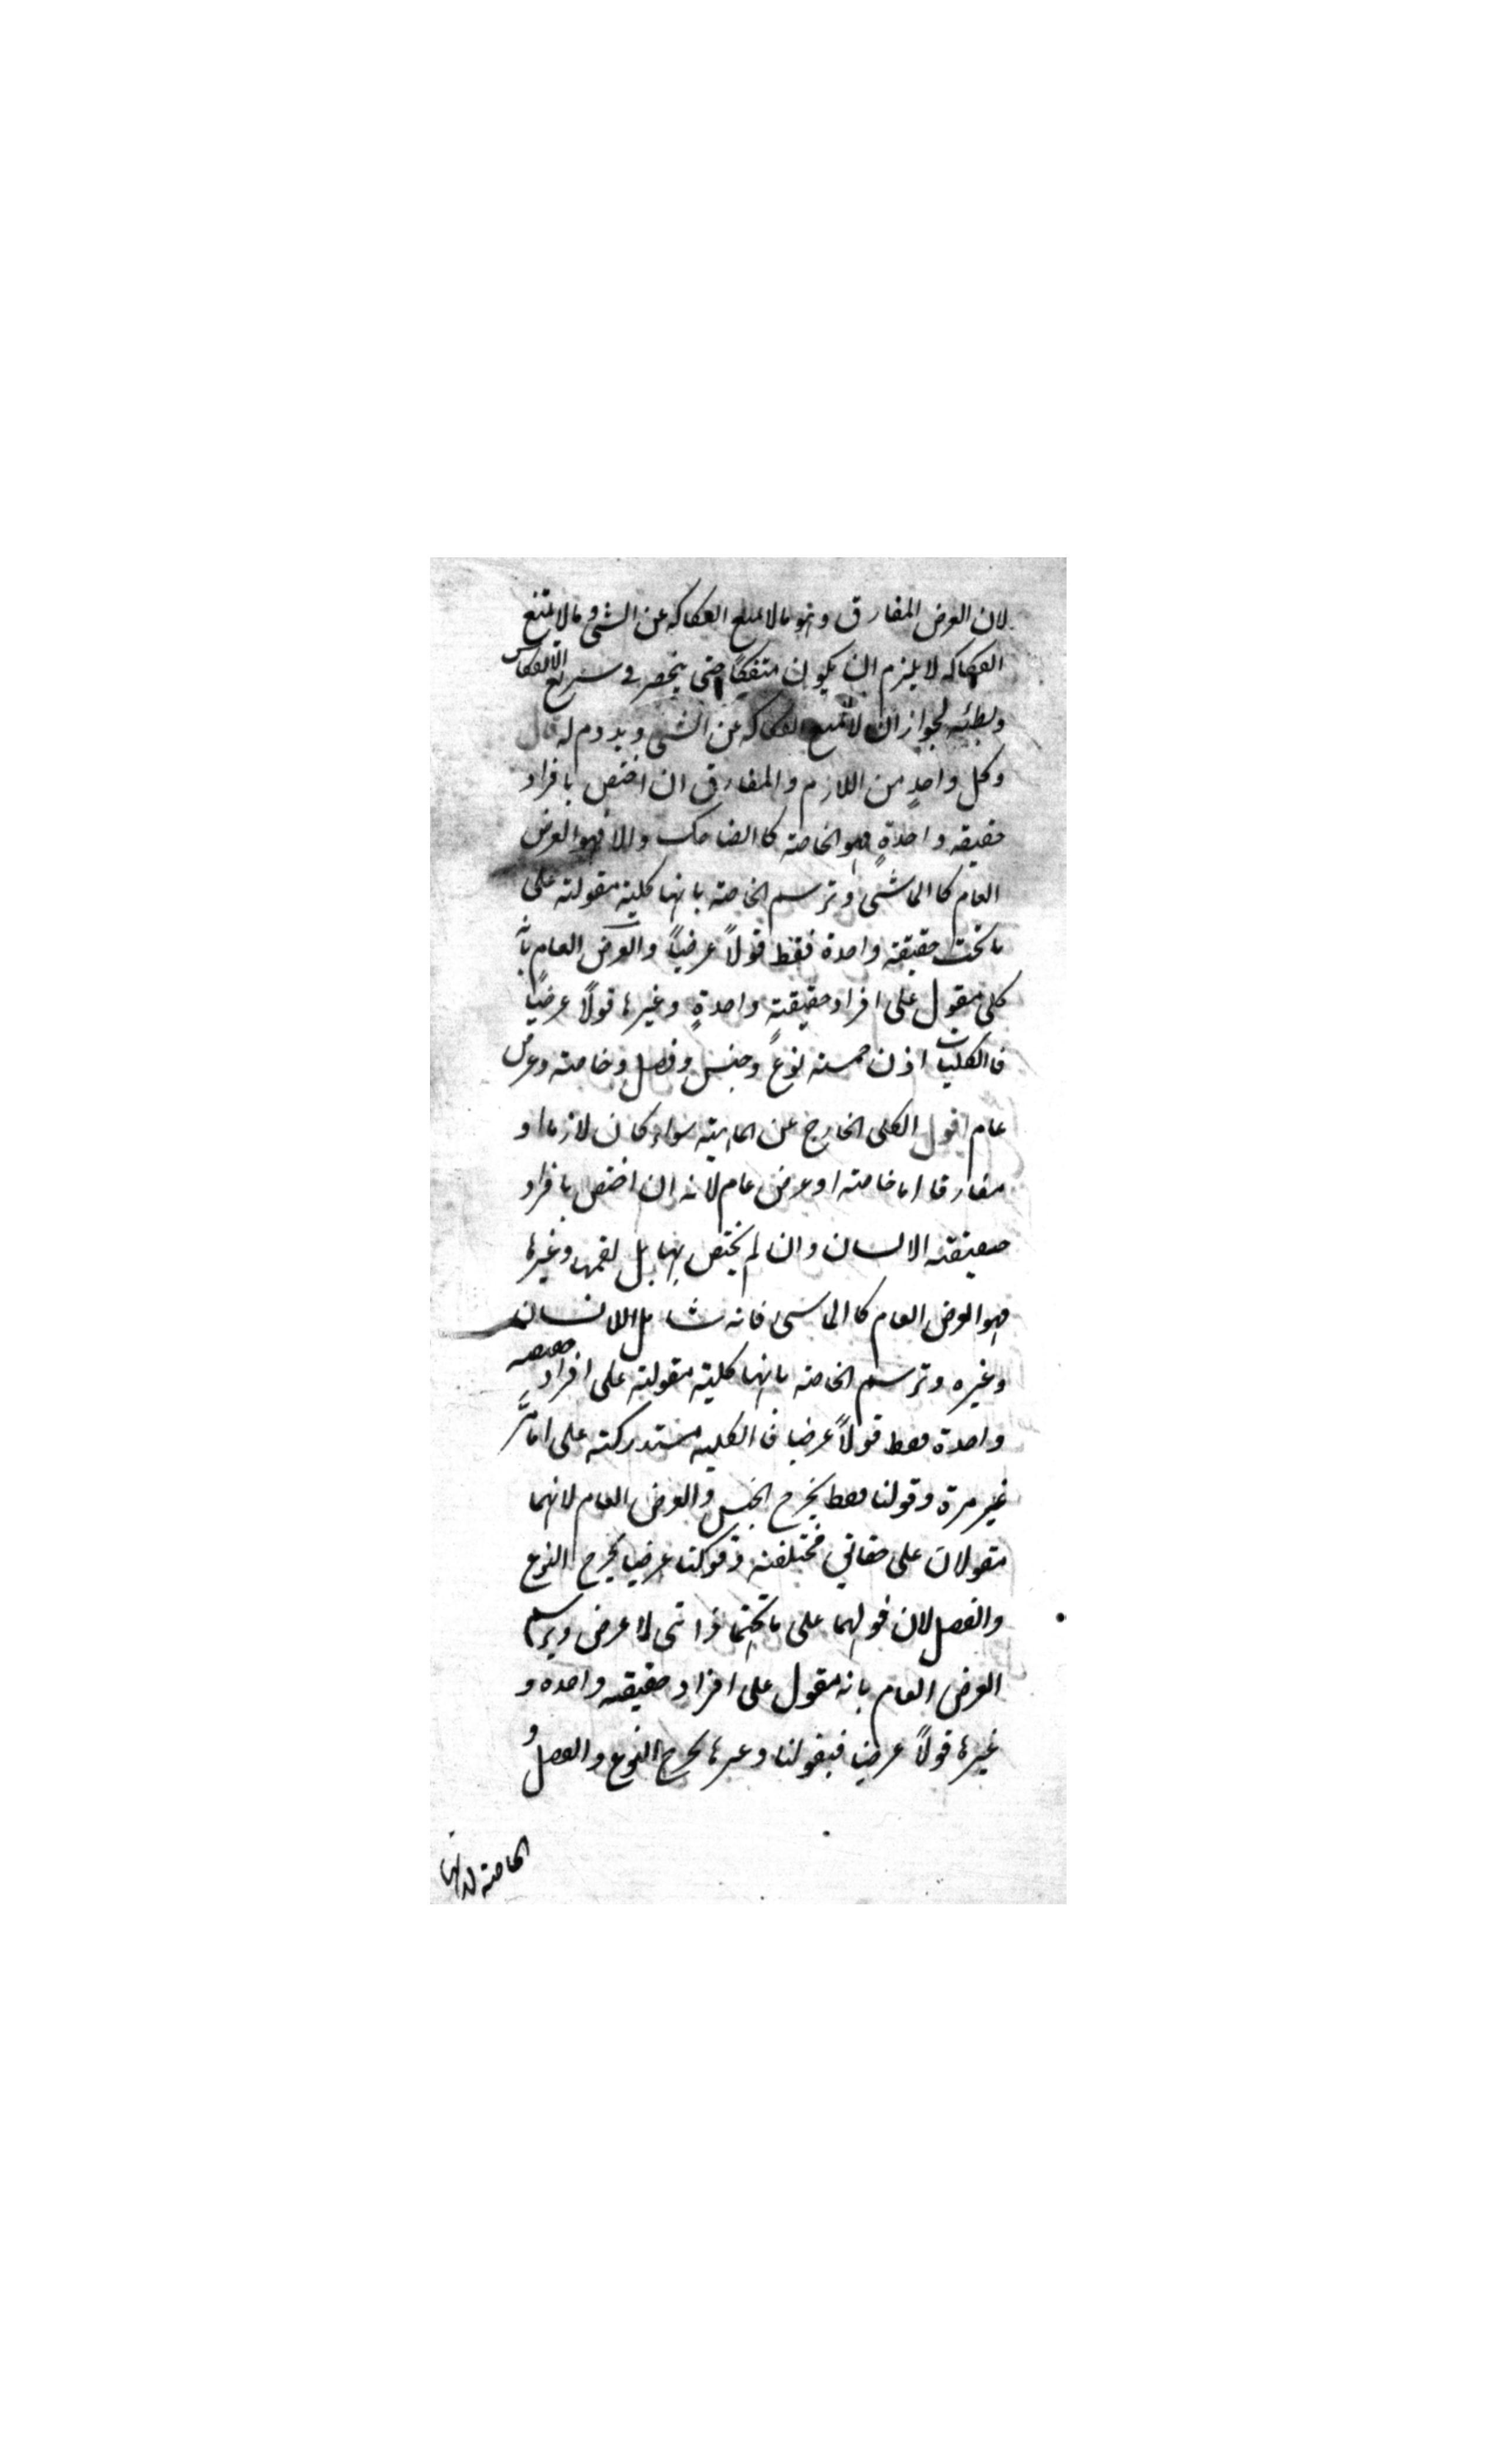 لان العرض المفارق وهو مالا يمتنع انفكاكه عن الشئ و مالا يمتنع
انفكاكه لا يلزم ان يكون منفكا حتى ينحصر فى سريع الانفكاك
وبطئه لجواز ان لا يمتنع انفكاكه عن الشئ ويدوم له قال
وكل واحد من اللازم والمفارق ان اختص بافراد
حقيقة واحدةٍ فهو الخاصة كالضاحك والا فهو العرض
العام كالماشى وترسم الخاصة بانها كلية مقولة على
ماتحت حقيقة واحدة فقط قولاً عرضياً والعرض العام بانه
كلى مقول على افراد حقيقة واحدةٍ وغيرها قولاً عرضياً
فالكليات اذن خمسة نوع وجنس وفصل وخاصة وعرض
عام اقول الكلى الخارج عن الماهية سواء كان لازما او
مفارقا اما خاصة او عرض عام لانه ان اختص بافراد
حقيقة الانسان وان لم يختص بها بل يعمها وغيرها
فهو العرض العام كالماشى فانه شامل للانسان
وغيره وترسم الخاصة بانها كلية مقولة على افراد حقيقة
واحدة فقط قولاً عرضيا فالكلية مستدركة على مامرَّ
غير مرة وقولنا فقط يخرج الجنس والعرض العام لانهما
مقولان على حقائق مختلفة وقولنا عرضيا يخرج النوع
والفصل لان قولهما على ماتحتهما ذاتى لا عرضى ويرسم
العرض العام بانه مقول على افراد حقيقة واحده و
غيرها قولاً عرضيا فبقولنا وغيرها يخرج النوع والفصل و
الخاصة لانها